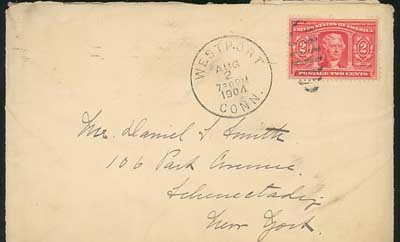 WESTPORT
AUG
2
730PM
1904
CONN.
UNITED STATES OF AMERICA
2 2
POSTAGE TWO CENTS
Mr. Daniel T. Smith
106 Park Avenue.
Schenectady
New York.